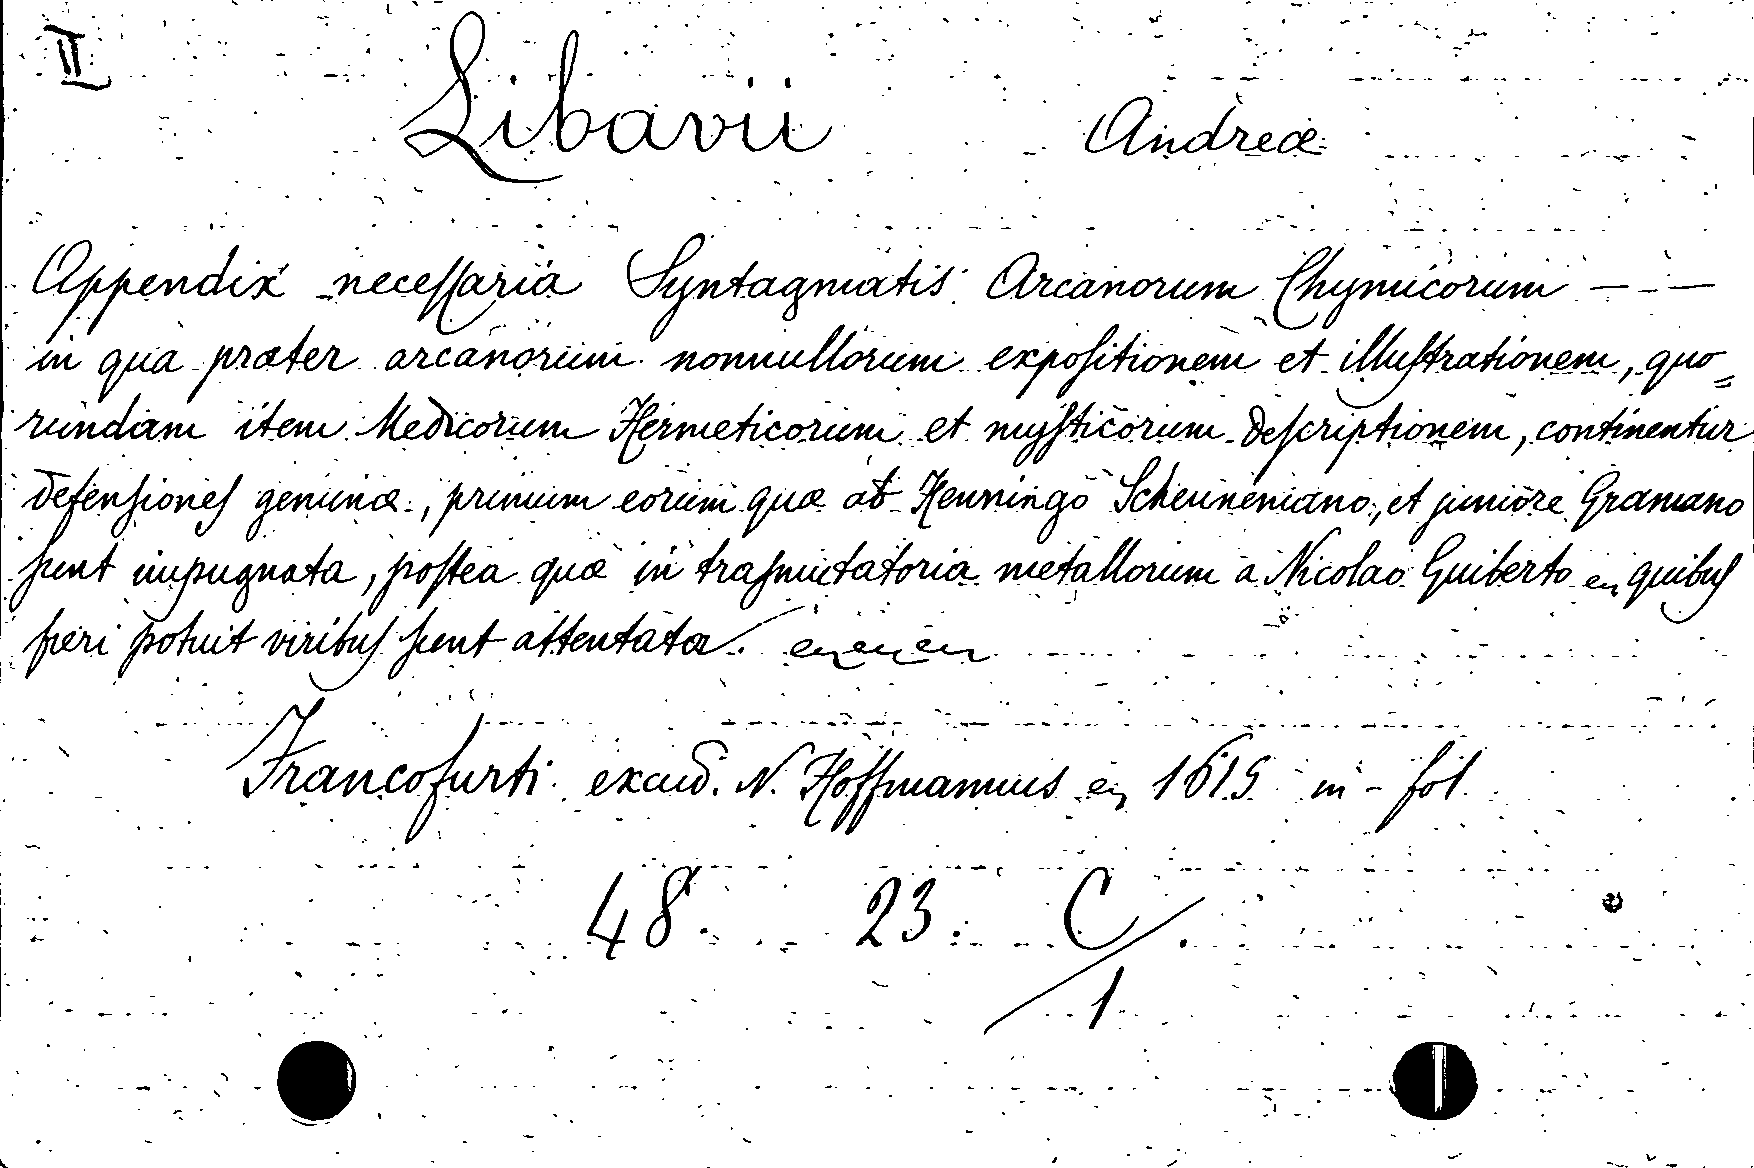 II
Libavii Andreæ
Appendix neceſſaria Syntagmatis Arcanorum Chymicorum — - —
in qua præter arcanorum nonnullorum expoſitionem et illuſtrationem, quo=
rundam item Medicorum Hermeticorum et myſticorum deſcriptionem, continentur
defenſioneſ genuinæ, primum eorum quæ ab Henningo Scheunemano, et juniore Gramano
ſunt impugnata, poſtea quæ in traſmutatoria metallorum a Nicolao Guiberto quibuſ
fieri potuit viribuſ ſunt attentata.
Francofurti excud. N. Hoffmannus 1615 in-fol.
48. 23. C/1.